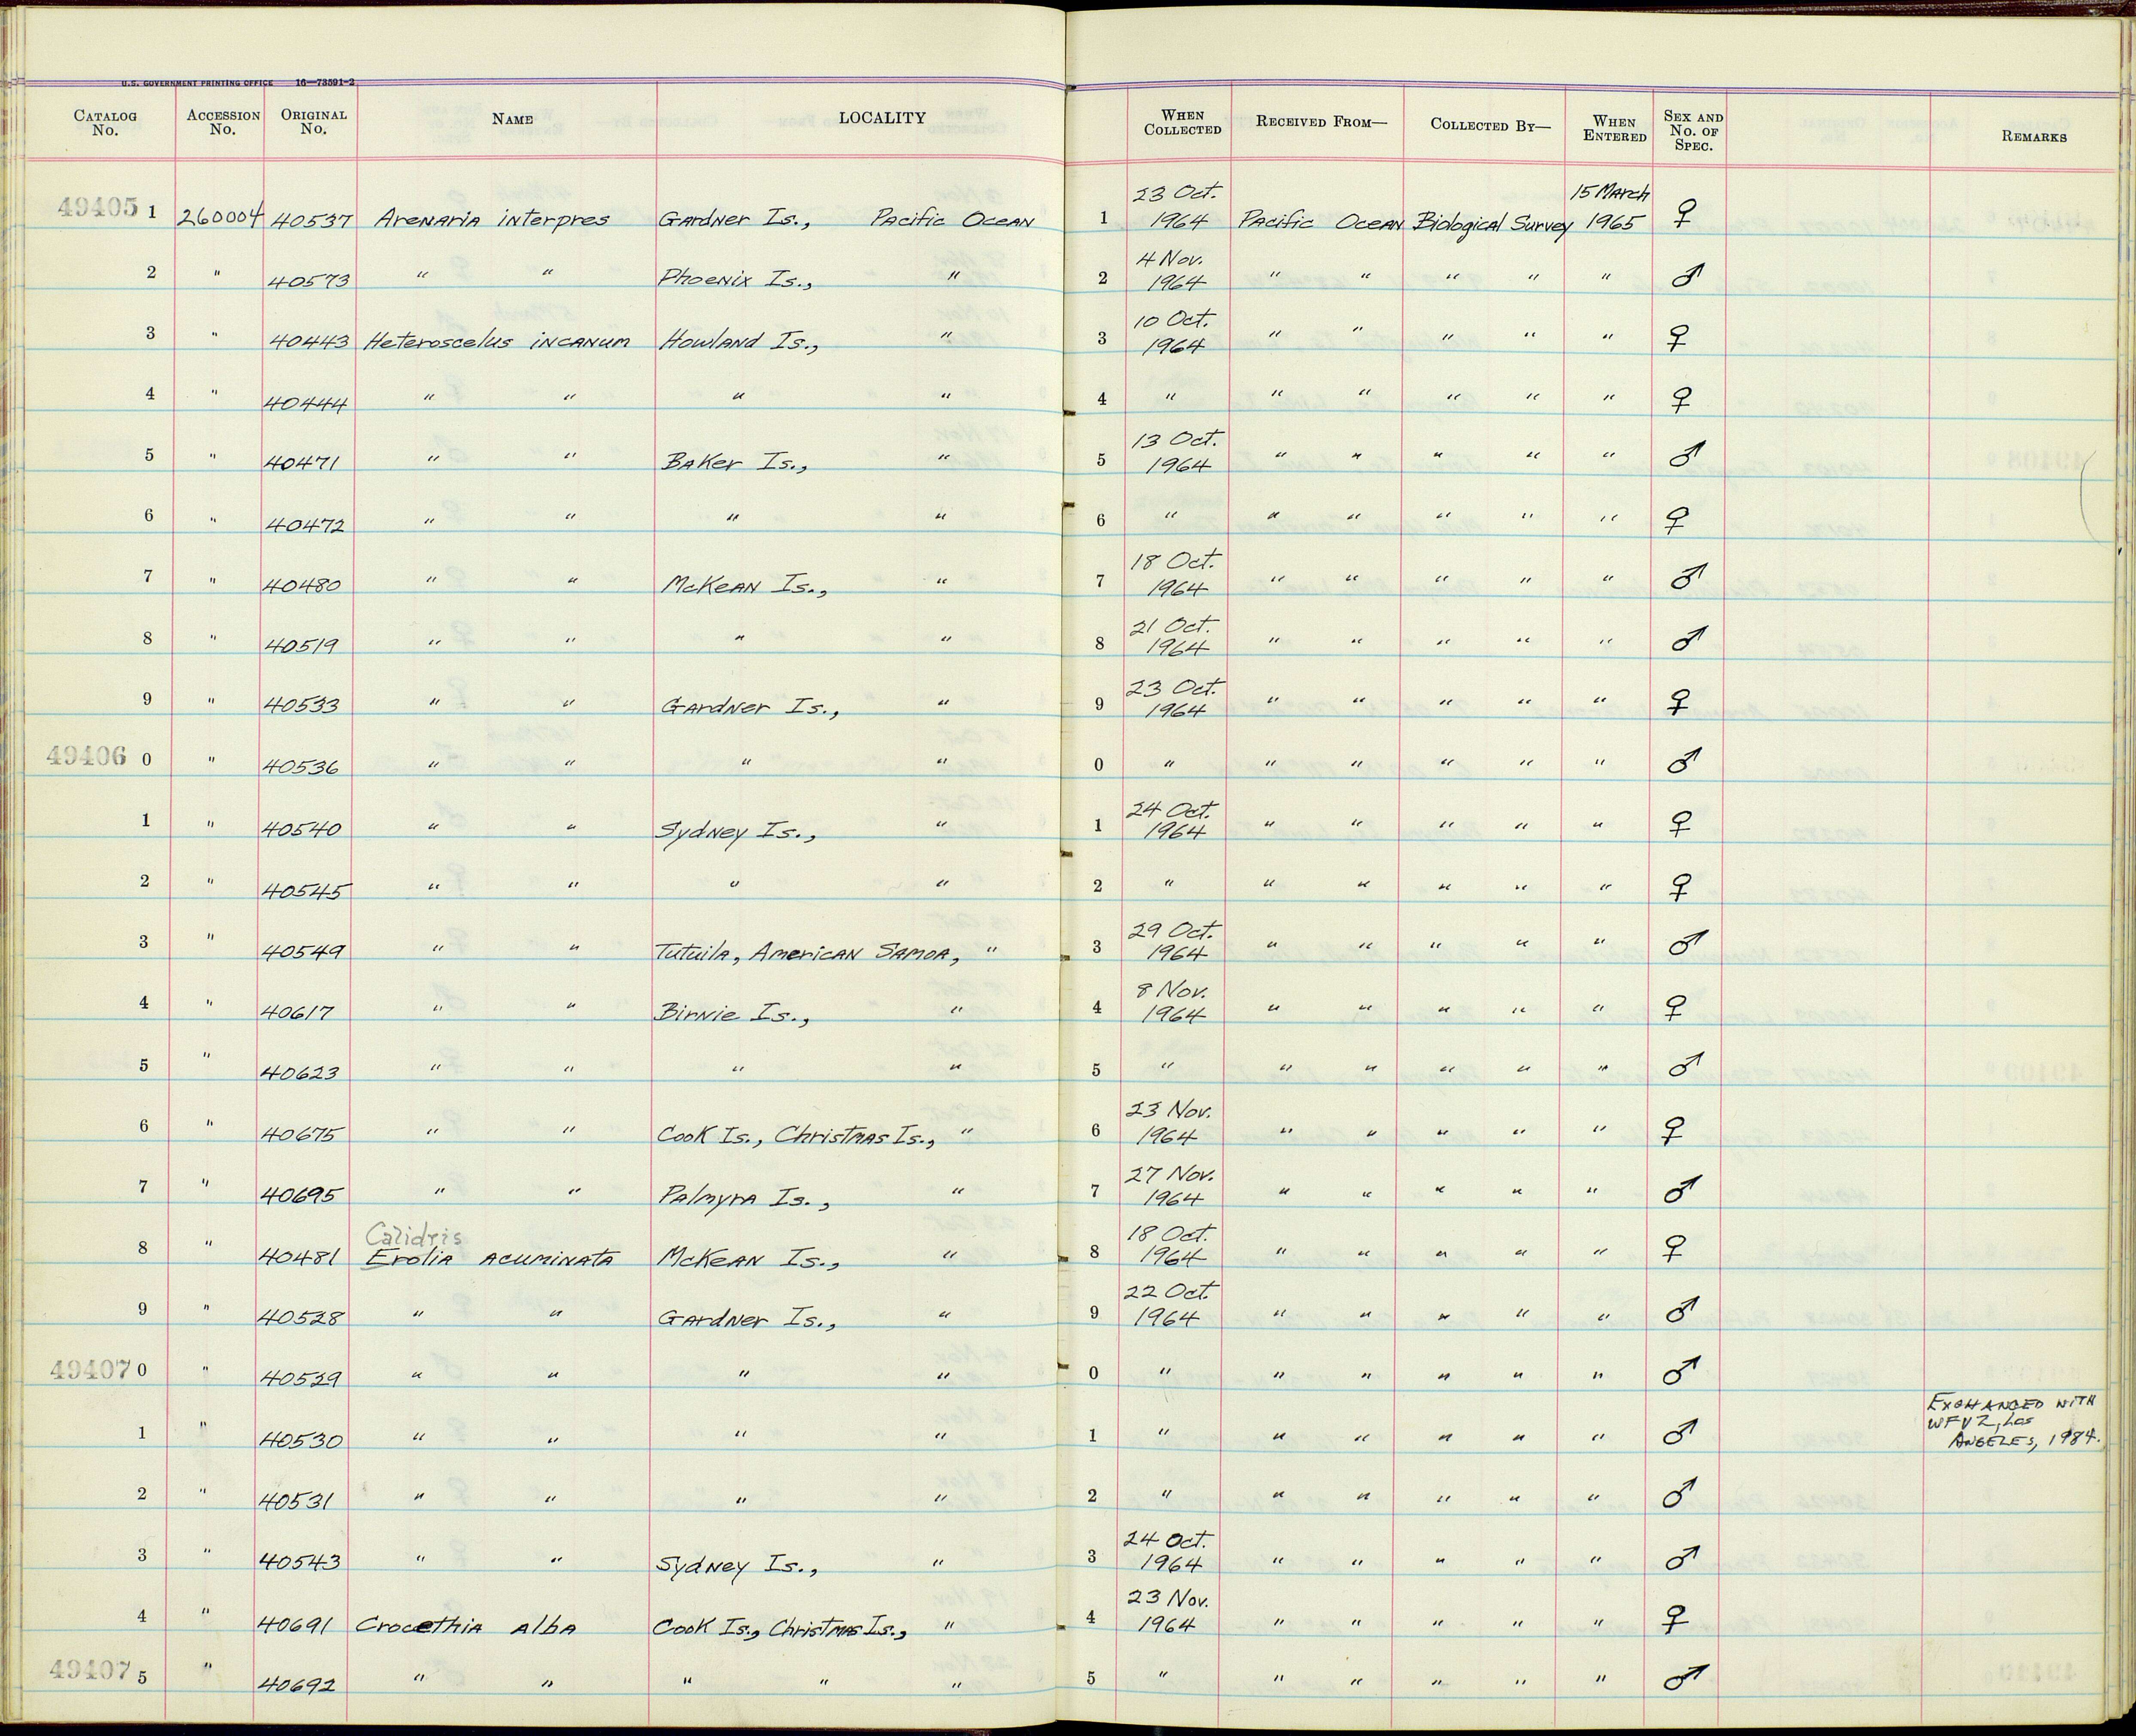 U.S. GOVERNMENT PRINTING OFFICE 16—73591-2
CATALOG No. ACCESSION No. ORIGINAL No. NAME LOCALITY WHEN COLLECTED RECEIVED FROM— COLLECTED BY— WHEN ENTERED SEX AND No. OF SPEC. REMARKS
49405 1 260004 40537 Arenaria interpres Gardner Is., Pacific Ocean 1 23 Oct. 1964 Pacific Ocean Biological Survey 15 March 1965 ♀
2 " 40573 " " Phoenix Is., " 2 4 Nov. 1964 " " " " " ♂
3 " 40443 Heteroscelus incanum Howland Is., " 3 10 Oct. 1964 " " " " " ♀
4 " 40444 " " " " 4 " " " " " " ♀
5 " 40471 " " Baker Is., " 5 13 Oct. 1964 " " " " " ♂
6 " 40472 " " " " 6 " " " " " " ♀
7 " 40480 " " McKean Is., " 7 18 Oct. 1964 " " " " " ♂
8 " 40519 " " " " 8 21 Oct. 1964 " " " " " ♂
9 " 40533 " " Gardner Is., " 9 23 Oct. 1964 " " " " " ♀
49406 0 " 40536 " " " " 0 " " " " " " ♂
1 " 40540 " " Sydney Is., " 1 24 Oct. 1964 " " " " " ♀
2 " 40545 " " " " 2 " " " " " " ♀
3 " 40549 " " Tutuila, American Samoa, " 3 29 Oct. 1964 " " " " " ♂
4 " 40617 " " Birnie Is., " 4 8 Nov. 1964 " " " " " ♀
5 " 40623 " " " " 5 " " " " " " ♂
6 " 40675 " " Cook Is., Christmas Is., " 6 23 Nov. 1964 " " " " " ♀
7 " 40695 " " Palmyra Is., " 7 27 Nov. 1964 " " " " " ♂
Calidris
8 " 40481 Erolia acuminata McKean Is., " 8 18 Oct. 1964 " " " " " ♀
9 " 40528 " " Gardner Is., " 9 22 Oct. 1964 " " " " " ♂
49407 0 " 40529 " " " " 0 " " " " " " ♂
1 " 40530 " " " " 1 " " " " " " ♂ Exchanged with WFVZ, Los Angeles, 1984.
2 " 40531 " " " " 2 " " " " " " ♂
3 " 40543 " " Sydney Is., " 3 24 Oct. 1964 " " " " " ♂
4 " 40691 Crocethia alba Cook Is., Christmas Is., " 4 23 Nov. 1964 " " " " " ♀
49407 5 " 40692 " " " " " 5 " " " " " " ♂